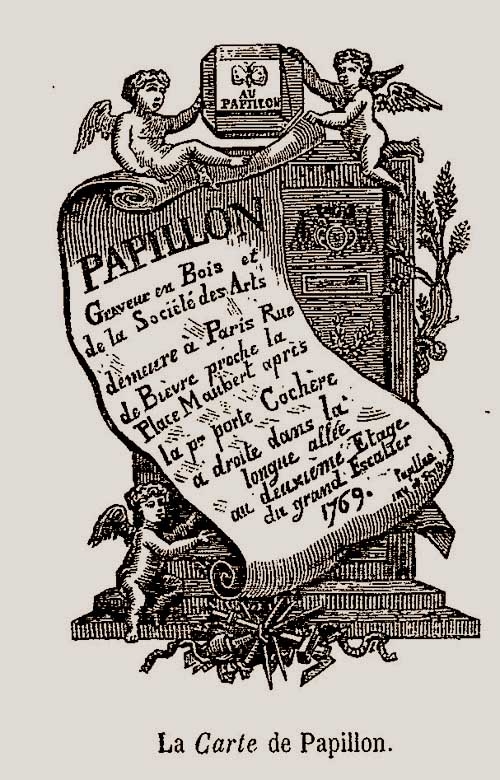 AU
PAPILLON
PAPILLON
Graveur en Bois et
de la Société des Arts
demeure à Paris Rue
de Bièvre proche la
Place Maubert après
la pre porte Cochère
à droite dans la
longue allée
au deuxième Etage
du grand Escalier
1769.
Papillon
inv. et Sculp.
La Carte de Papillon.